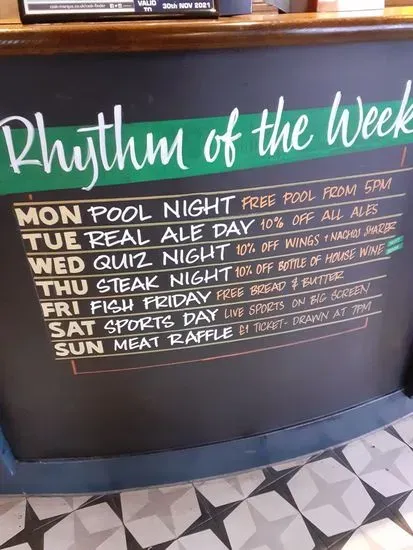 VALID TO 30th NOV 2021
Rhythm of the Week
MON POOL NIGHT FREE POOL FROM 5PM
TUE REAL ALE DAY 10% OFF ALL ALES
WED QUIZ NIGHT 10% OFF WINGS + NACHOS SHARER
THU STEAK NIGHT 10% OFF BOTTLE OF HOUSE WINE
FRI FISH FRIDAY FREE BREAD & BUTTER
SAT SPORTS DAY LIVE SPORTS ON BIG SCREEN
SUN MEAT RAFFLE £1 TICKET - DRAWN AT 7PM